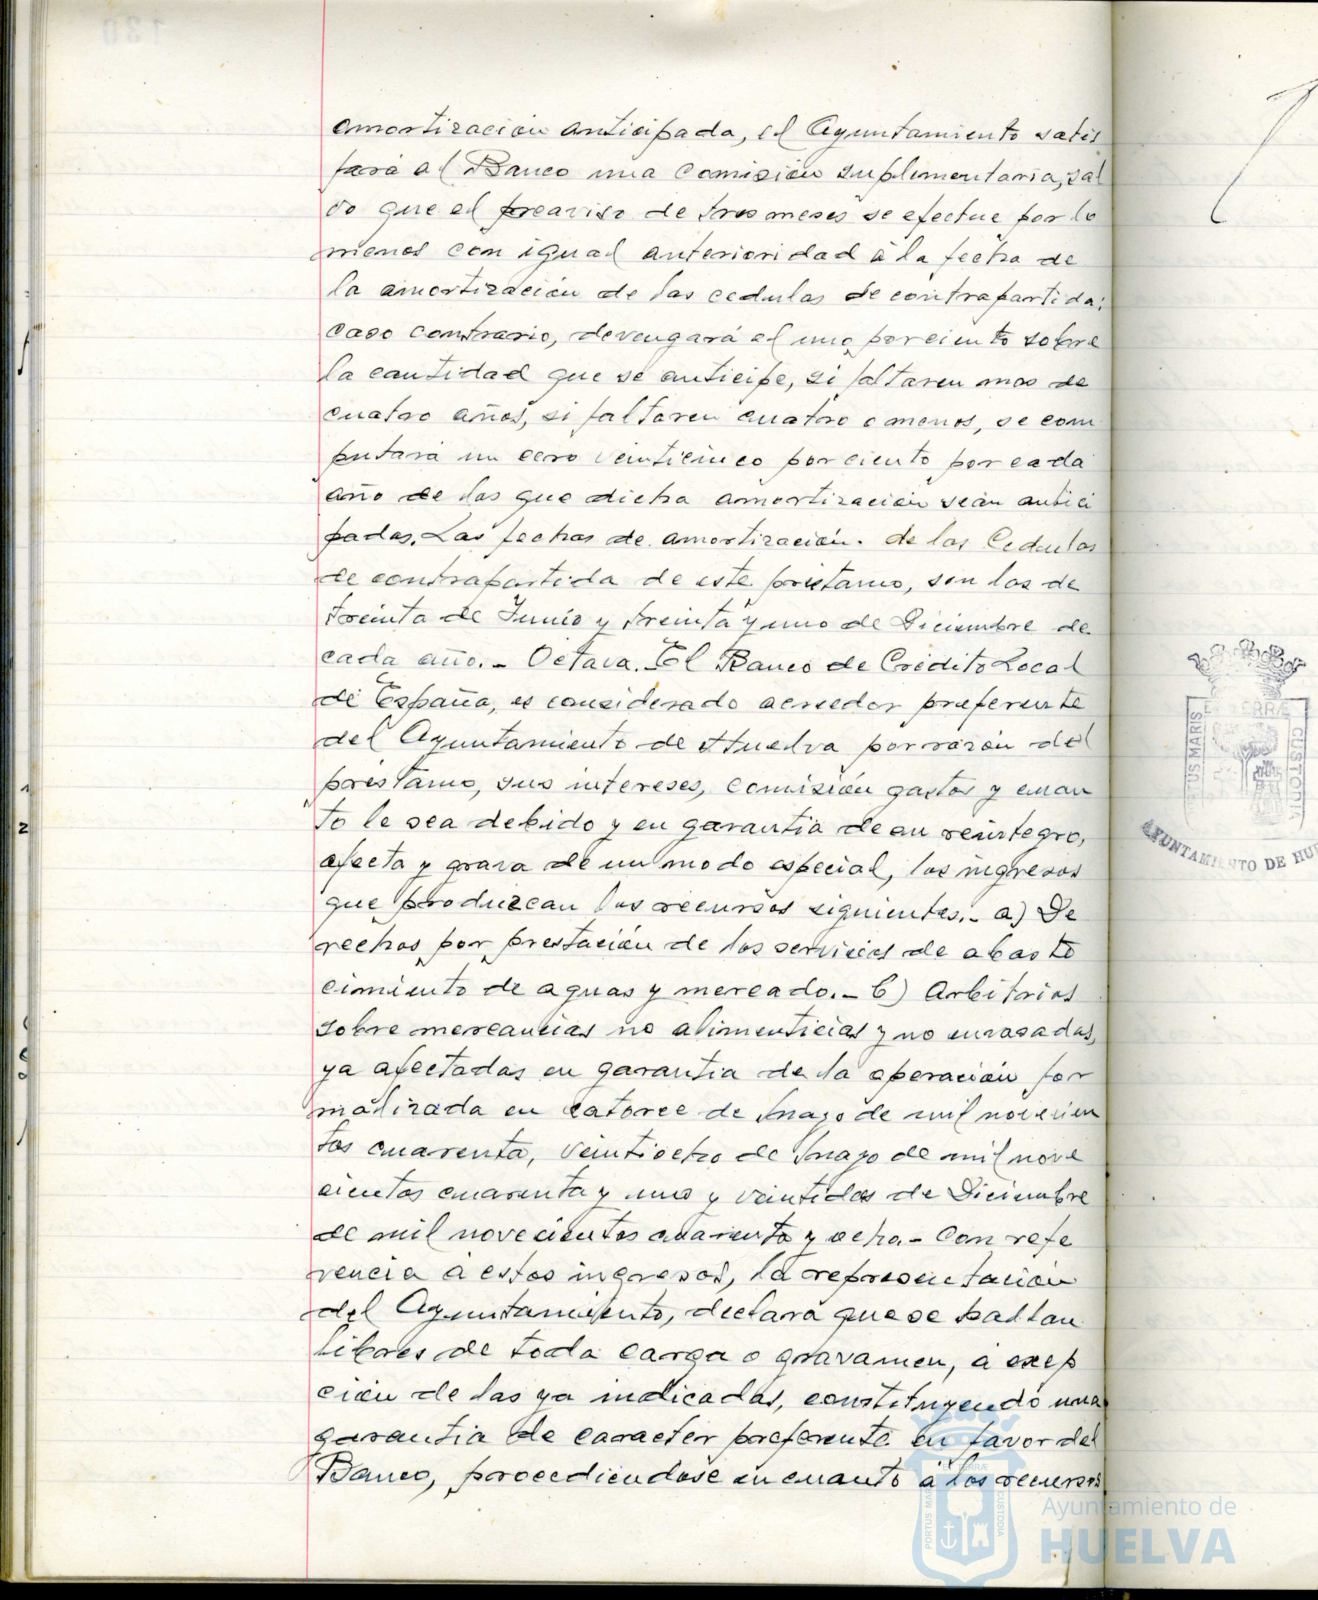 amortización anticipada, el Ayuntamiento satis
fará al Banco una comisión suplementaria, sal
vo que el preaviso de tres meses se efectue por lo
menos con igual anterioridad à la fecha de
la amortización de las cedulas de contrapartida;
caso contrario, devengará el uno por ciento sobre
la cantidad que se anticipe, si faltaren mas de
cuatro años, si faltaren cuatro o menos, se com
putará un cero veinticinco por ciento por cada
año de los que dicha amortización sean antici
padas. Las fechas de amortización. de las Cedulas
de contrapartida de este préstamo, son las de
treinta de Junio y treinta y uno de Diciembre de
cada año.- Octava.- El Banco de Crédito Local
de España, es considerado acreedor preferente
del Ayuntamiento de Huelva por razón del
préstamo, sus intereses, comisión gastos y cuan
to le sea debido y en garantia de su reintegro,
afecta y grava de un modo especial, los ingresos
que produzcan los recursos siguientes.- a) De
rechos por prestación de los servicios de abaste
cimiento de aguas y mercado.- b) Arbitrios
sobre mercancias no alimenticias y no envasadas,
ya afectadas en garantia de la operación for
malizada en catorce de Mayo de mil novecien
tos cuarenta, veintiocho de Mayo de mil nove
cientos cuarenta y uno y veintidos de Diciembre
de mil novecientos cuarenta y ocho.- Con refe
rencia à estos ingresos, la representación
del Ayuntamiento, declara que se hallan
libres de toda carga o gravamen, à exep
ción de las ya indicadas, constituyendo una
garantia de caracter preferente en favor del
Banco, procediendose en cuanto à los recursos
PORTUS MARIS
TERRÆ
CUSTODIA
AYUNTAMIENTO DE HU
Ayuntamiento de
HUELVA